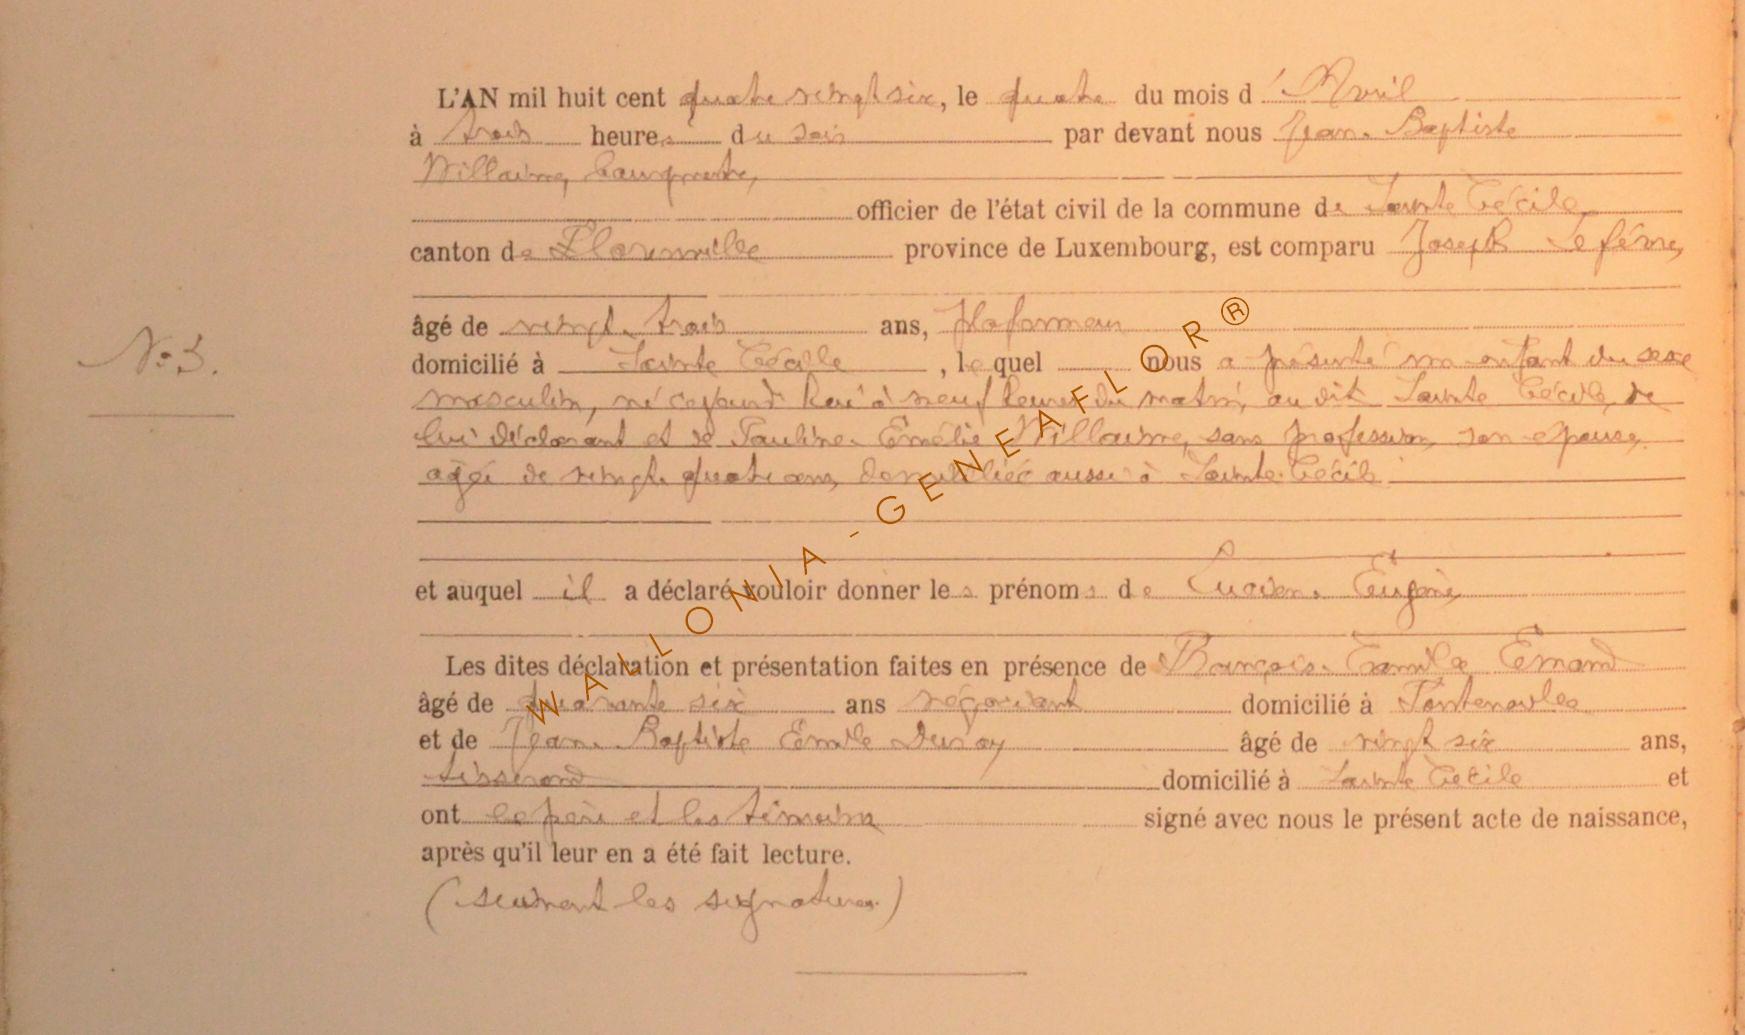 L'AN mil huit cent quatre vingt six, le quatre du mois d' Avril
à trois heures du soir par devant nous Jean-Baptiste
Willaime, bourgmestre,
officier de l'état civil de la commune de Sainte Cécile
canton de Florenville province de Luxembourg, est comparu Joseph Lefèvre,
âgé de vingt-trois ans, plafonneur
N° 5.
domicilié à Sainte Cécile, lequel nous a présenté un enfant du sexe
masculin, né cejourd'hui à neuf heures du matin, au dit Sainte Cécile, de
lui déclarant et de Pauline-Emélie Willaime, sans profession, son épouse,
agée de vingt-quatre ans, domiciliée aussi à Sainte-Cécile.
et auquel il a déclaré vouloir donner les prénoms de Lucien-Eugène
Les dites déclaration et présentation faites en présence de François-Camille
âgé de quarante six ans négociant domicilié à Fontenoille
et de Jean-Baptiste Emile Duroy âgé de vingt six ans,
tisserand domicilié à Sainte Cécile et
ont le père et les témoins signé avec nous le présent acte de naissance,
après qu'il leur en a été fait lecture.
(suivent les signatures.)
WALLONIA - GENEAFLOR®